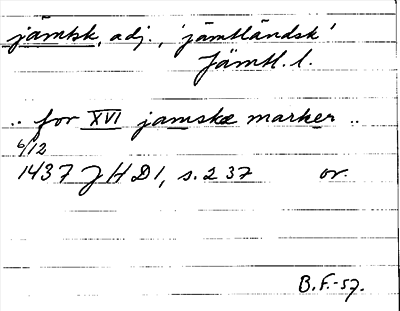 jämtsk, adj., 'jämtländsk'
Jämtl. l.
.. for XVI jamskæ marker ..
6/12
1437 JHD1, s. 237 or.
B.F.-57.